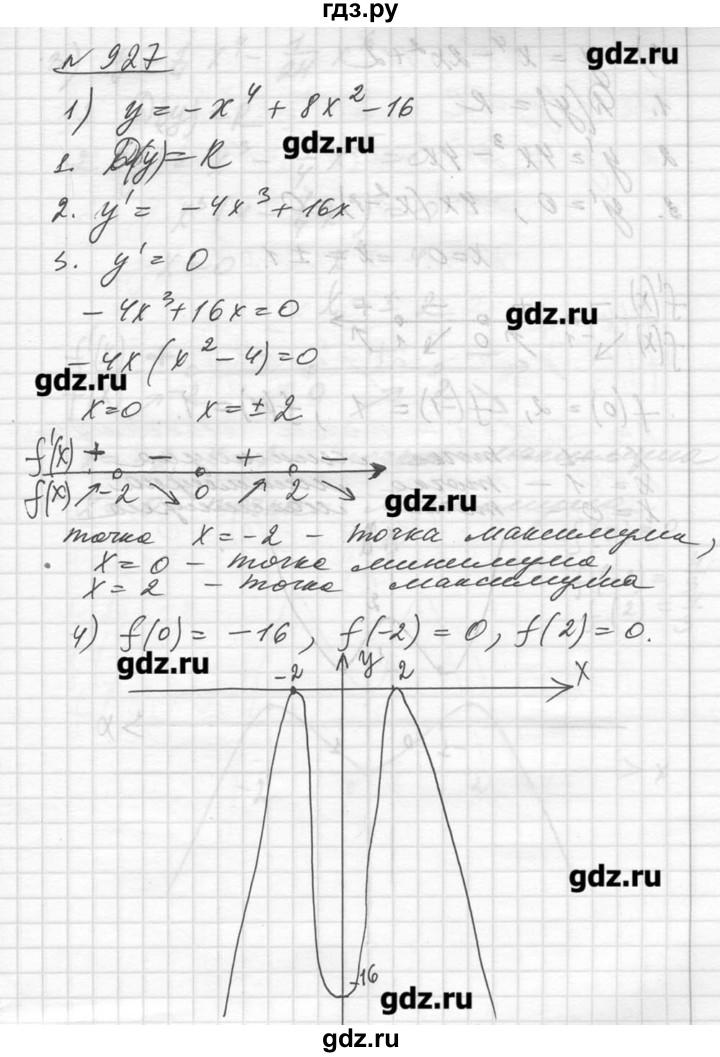 гдз.ру
gdz.ru
№ 927
1) y = -x⁴ + 8x² - 16
gdz.ru
1. D(y) = R
2. y' = -4x³ + 16x
3. y' = 0
-4x³ + 16x = 0
gdz.ru
-4x(x² - 4) = 0
gdz.ru
x = 0 x = ±2
f'(x) + - + -
f(x) ↗ -2 ↘ 0 ↗ 2 ↘
gdz.ru
точка x = -2 - точка максимума,
x = 0 - точка минимума,
x = 2 - точка максимума
4) f(0) = -16, f(-2) = 0, f(2) = 0.
gdz.ru
-2 y 2 x
gdz.ru
-16
gdz.ru
gdz.ru